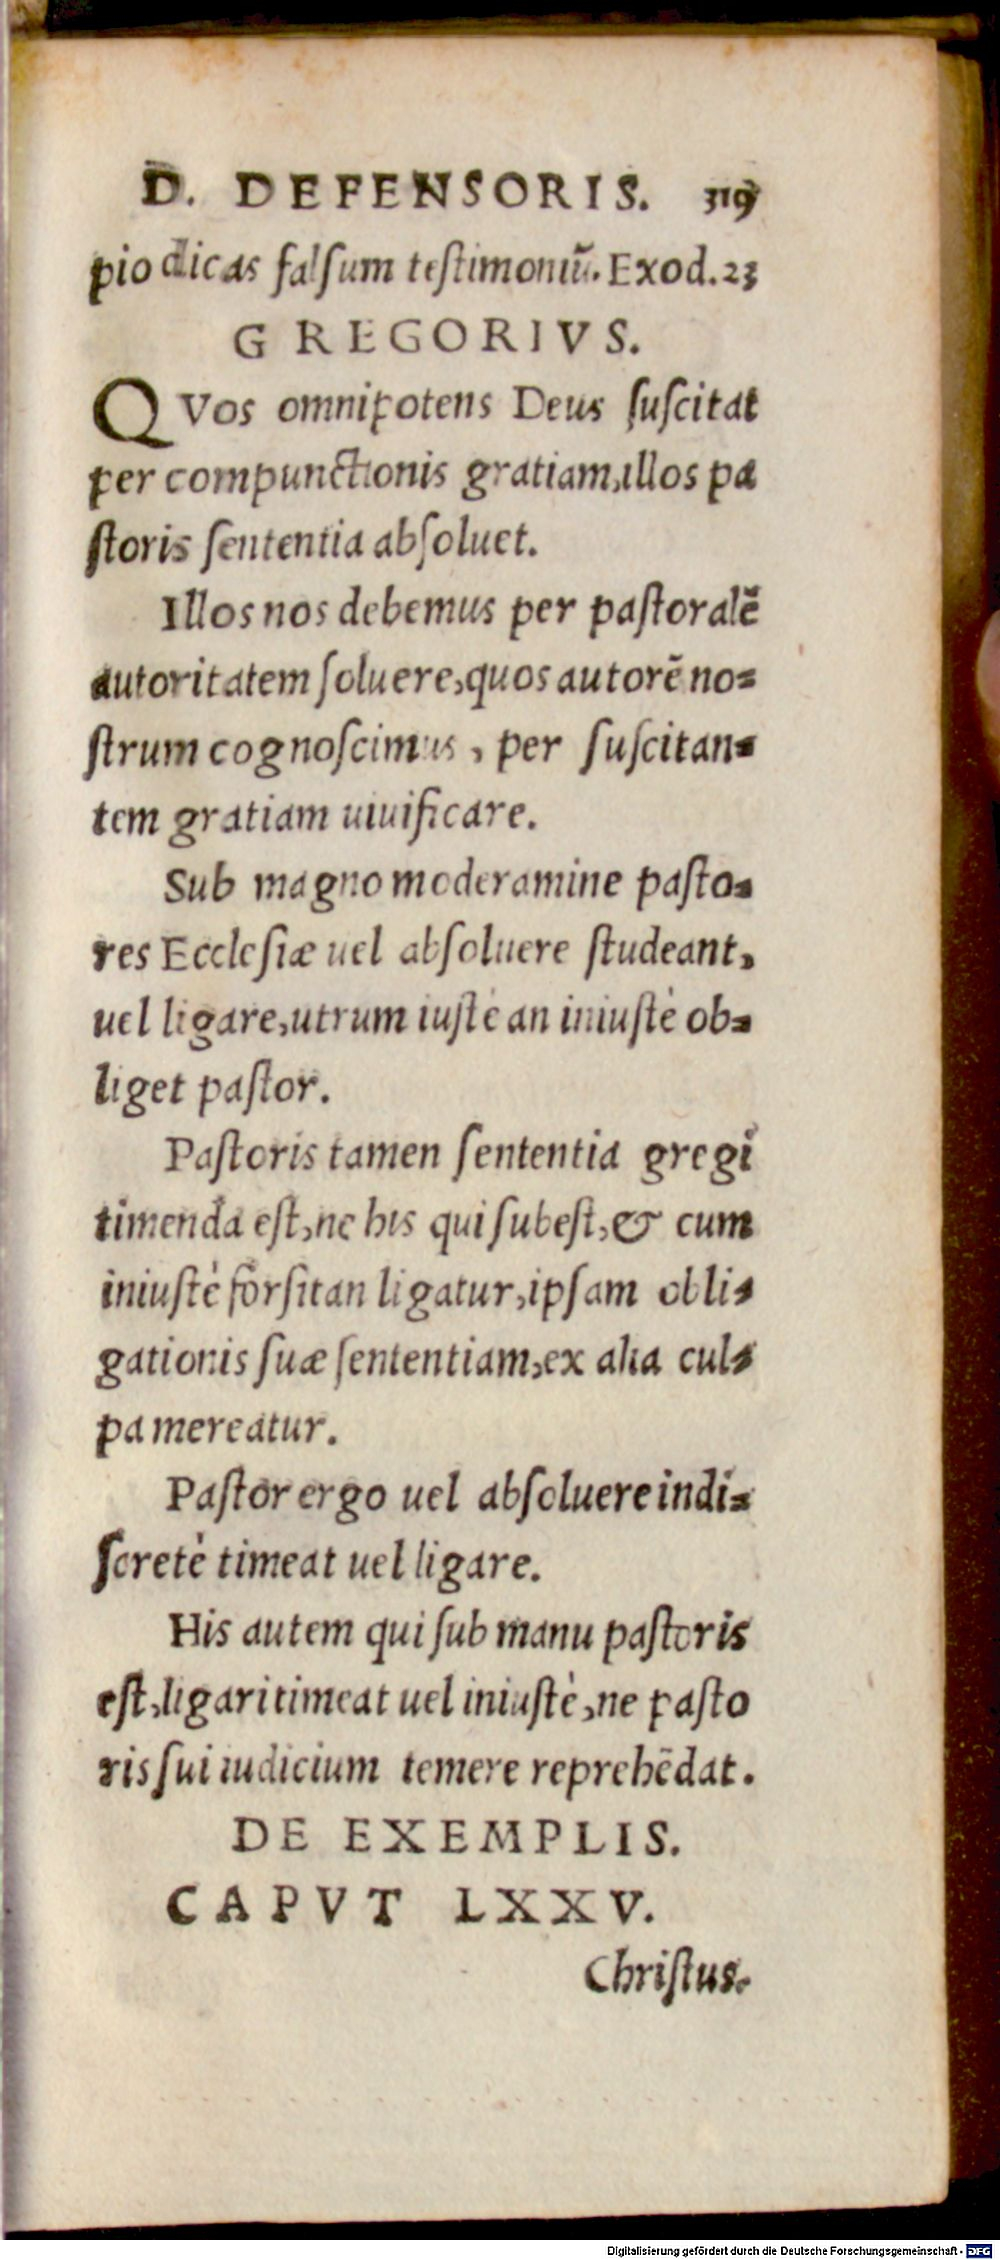 D. DEFENSORIS. 319
pio dicas falsum testimoniũ. Exod. 23
GREGORIVS.
QVos omnipotens Deus suscitat
per compunctionis gratiam, illos pa
storis sententia absoluet.
Illos nos debemus per pastoralẽ
autoritatem soluere, quos autorẽ no=
strum cognoscimus, per suscitan=
tem gratiam uiuificare.
Sub magno moderamine pasto=
res Ecclesiæ uel absoluere studeant,
uel ligare, utrum iustè an iniustè ob=
liget pastor.
Pastoris tamen sententia gregi
timenda est, ne his qui subest, & cum
iniustè forsitan ligatur, ipsam obli=
gationis suæ sententiam, ex alia cul=
pa mereatur.
Pastor ergo uel absoluere indi=
scretè timeat uel ligare.
His autem qui sub manu pastoris
est, ligari timeat uel iniustè, ne pasto
ris sui iudicium temere reprehẽdat.
DE EXEMPLIS.
CAPVT LXXV.
Christus.
Digitalisierung gefördert durch die Deutsche Forschungsgemeinschaft - DFG